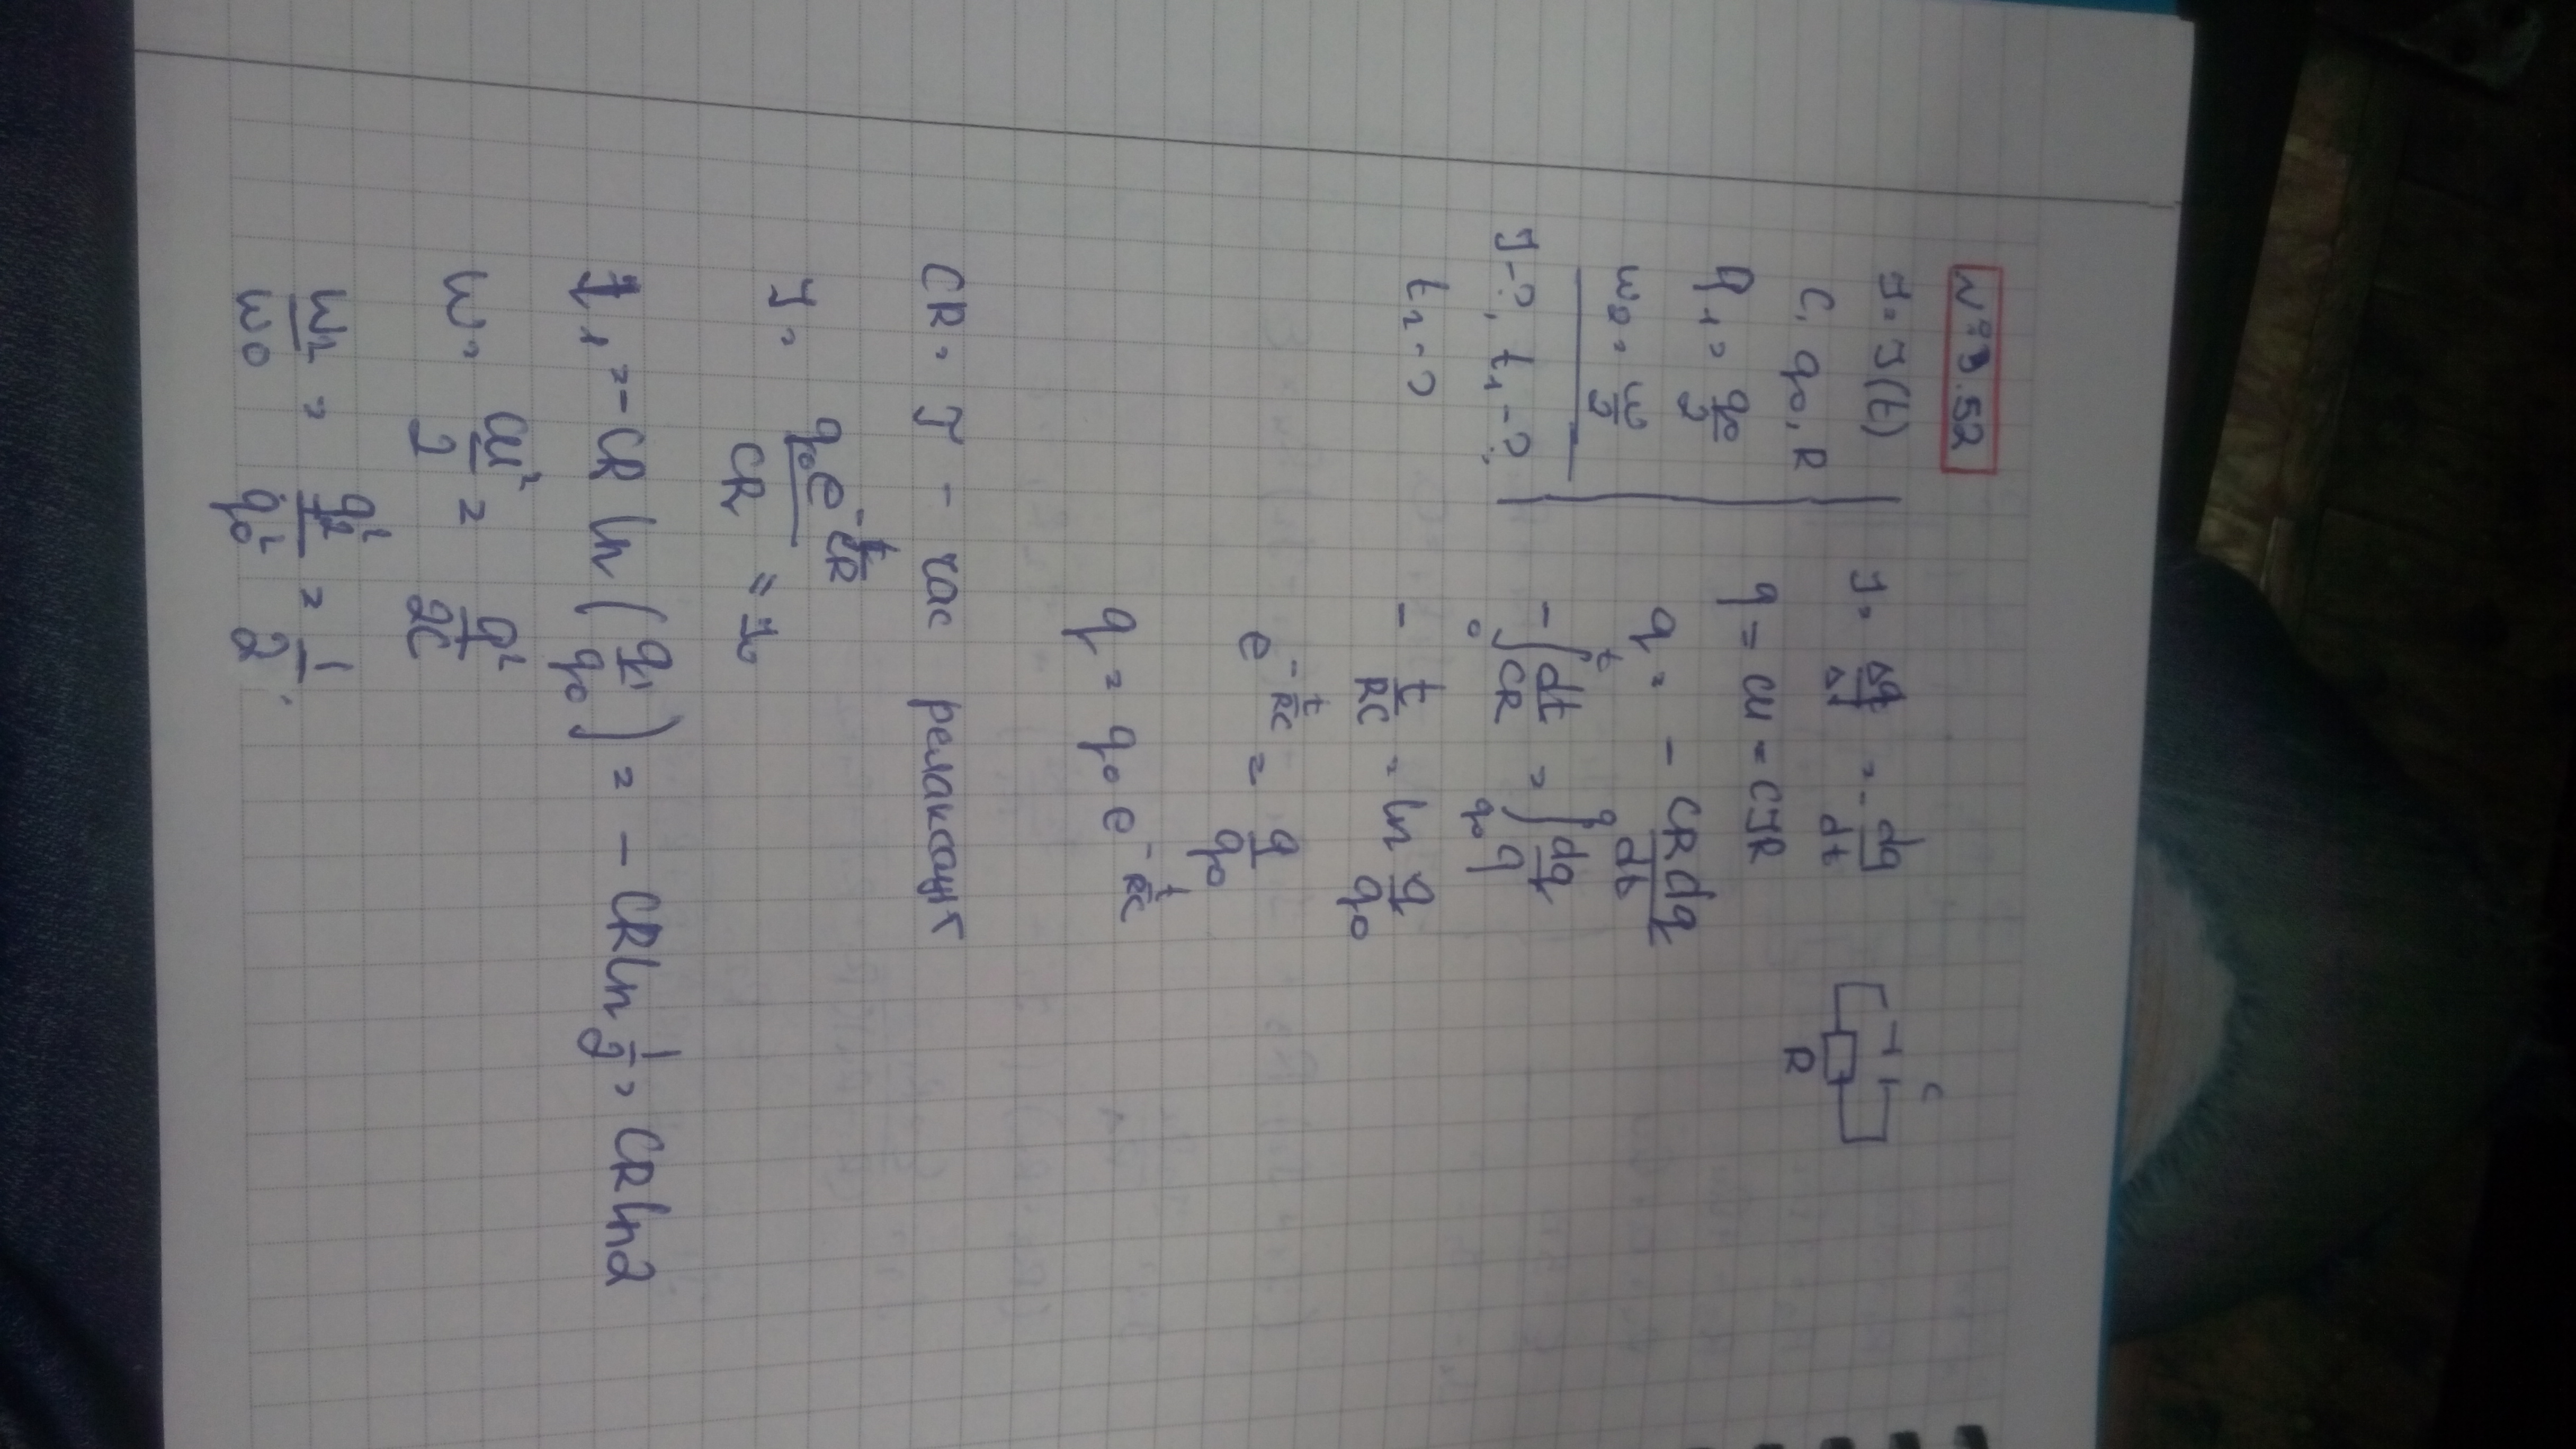 N°3.52
J=J(t)
C, q₀, R
q₁ = q₀/2
W₂ = W/2
J-?, t₁-?,
t₂-?
J = Δq/Δt = -dq/dt
q = CU = CJR
q = -CRdq/dt
-∫₀ᵗ dt/CR = ∫_{q₀}^{q} dq/q
-t/RC = ln q/q₀
e^{-t/RC} = q/q₀
q = q₀ e^{-t/RC}
C
R
CR = τ - час релаксації
J = q₀e^{-t/CR}/CR = J₀
t₁ = -CR ln(q₁/q₀) = -CR ln 1/2 = CR ln2
W = CU²/2 = q²/2C
W₂/W₀ = q₂²/q₀² = 1/2.